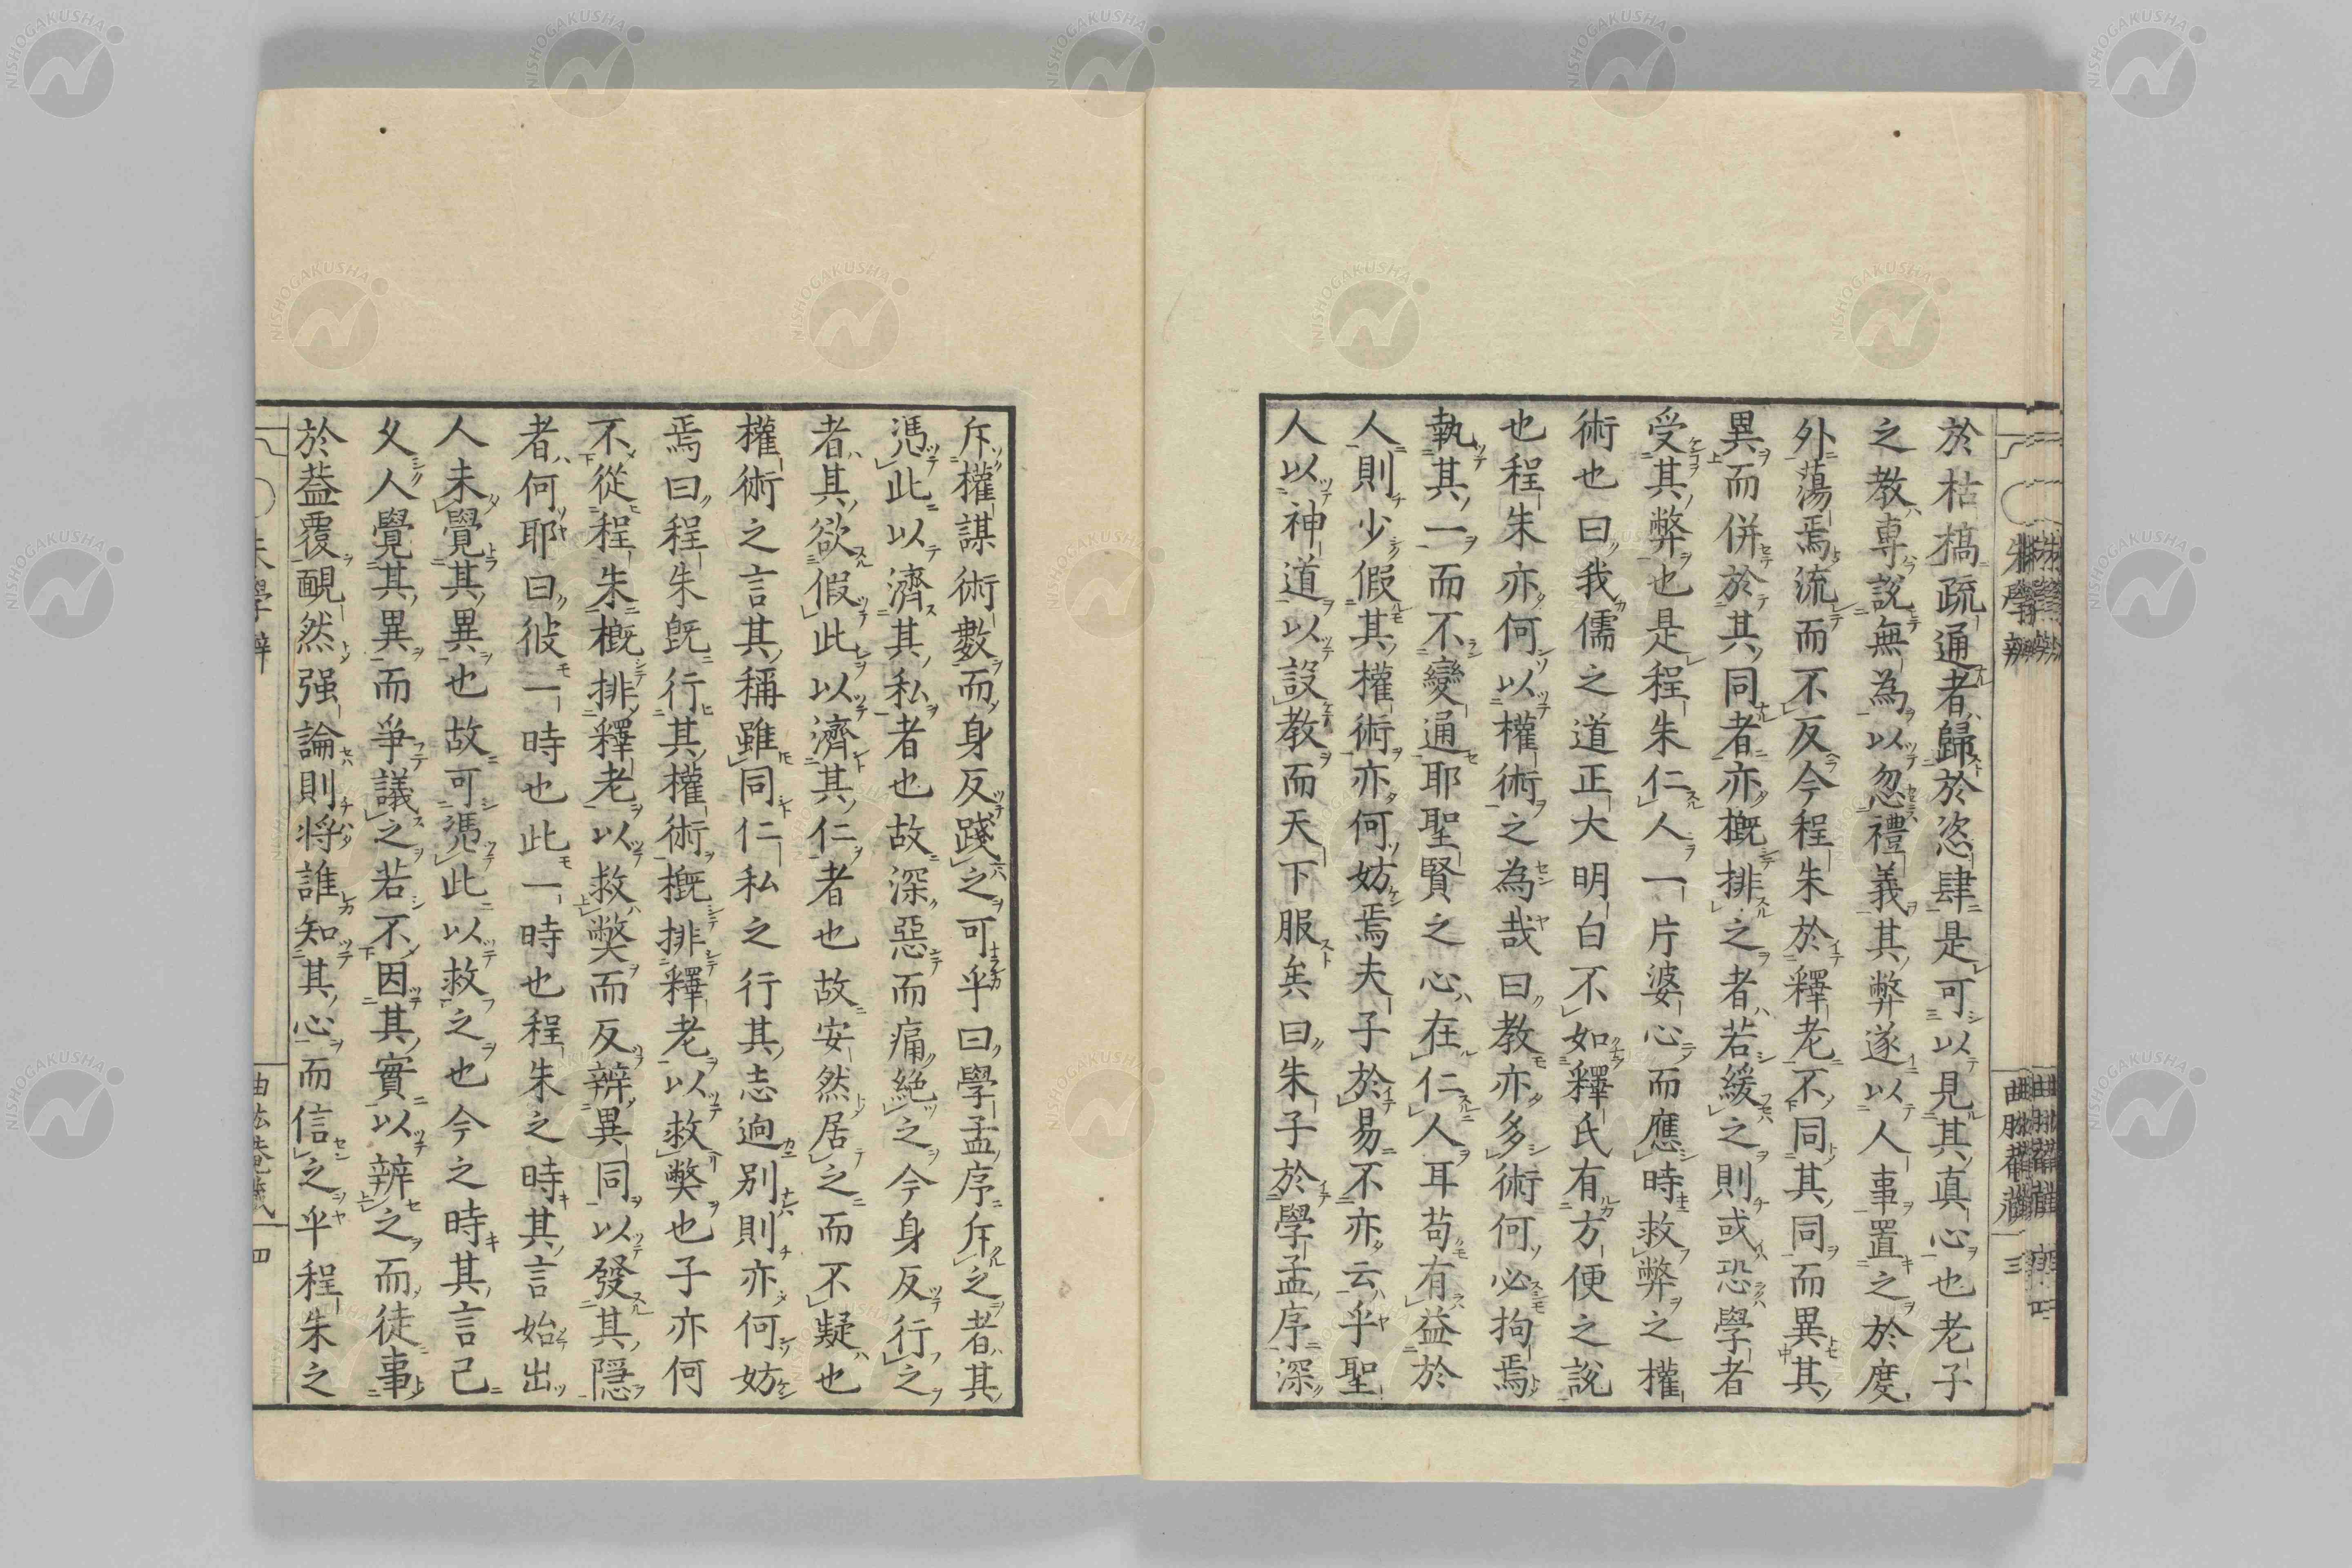 於枯槁疏通者歸於恣肆是可以見其真心也老子
之教專説無為以忽禮義其弊遂以人事置之於度
外蕩焉流而不反今程朱於釋老不同其同而異其
異而併於其同者亦概排之者若緩之則或恐學者
受其弊也是程朱仁人一片婆心而應時救弊之權
術也曰我儒之道正大明白不如釋氏有方便之説
也程朱亦何以權術之為哉曰教亦多術何必拘焉
執其一而不變通耶聖賢之心在仁人耳苟有益於
人則少假其權術亦何妨焉夫子於易不亦云乎聖
人以神道以設教而天下服矣曰朱子於學孟序深
斥權謀術數而身反踐之可乎曰學孟序斥之者其
憑此以濟其私者也故深惡而痛絶之今身反行之
者其欲假此以濟其仁者也故安然居之而不疑也
權術之言其稱雖同仁私之行其志逈別則亦何妨
焉曰程朱既行其權術概排釋老以救弊也子亦何
不從程朱概排釋老以救弊而反辨異同以發其隱
者何耶曰彼一時也此一時也程朱之時其言始出
人未覺其異也故可憑此以救之也今之時其言已
久人覺其異而爭議之若不因其實以辨之而徒事
於蓋覆靦然强論則將誰知其心而信之乎程朱之
朱學辨
曲肱菴藏
三
朱學辨
四
NISHOGAKUSHA